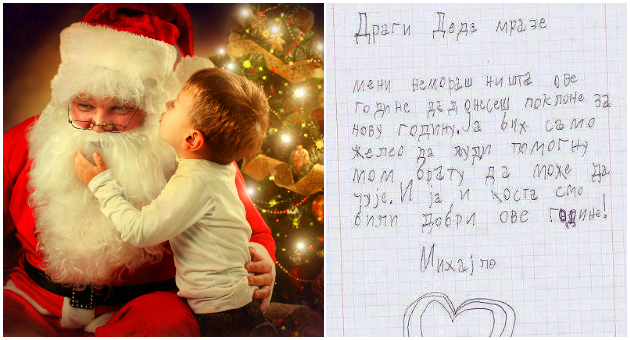 Драги Деда мразе
мени немораш ништа ове
године да донесеш поклоне за
нову годину. Ја бих само
желео да људи помогну
мом брату да може да
чује. И ја и Коста смо
били добри ове године!
Михајло